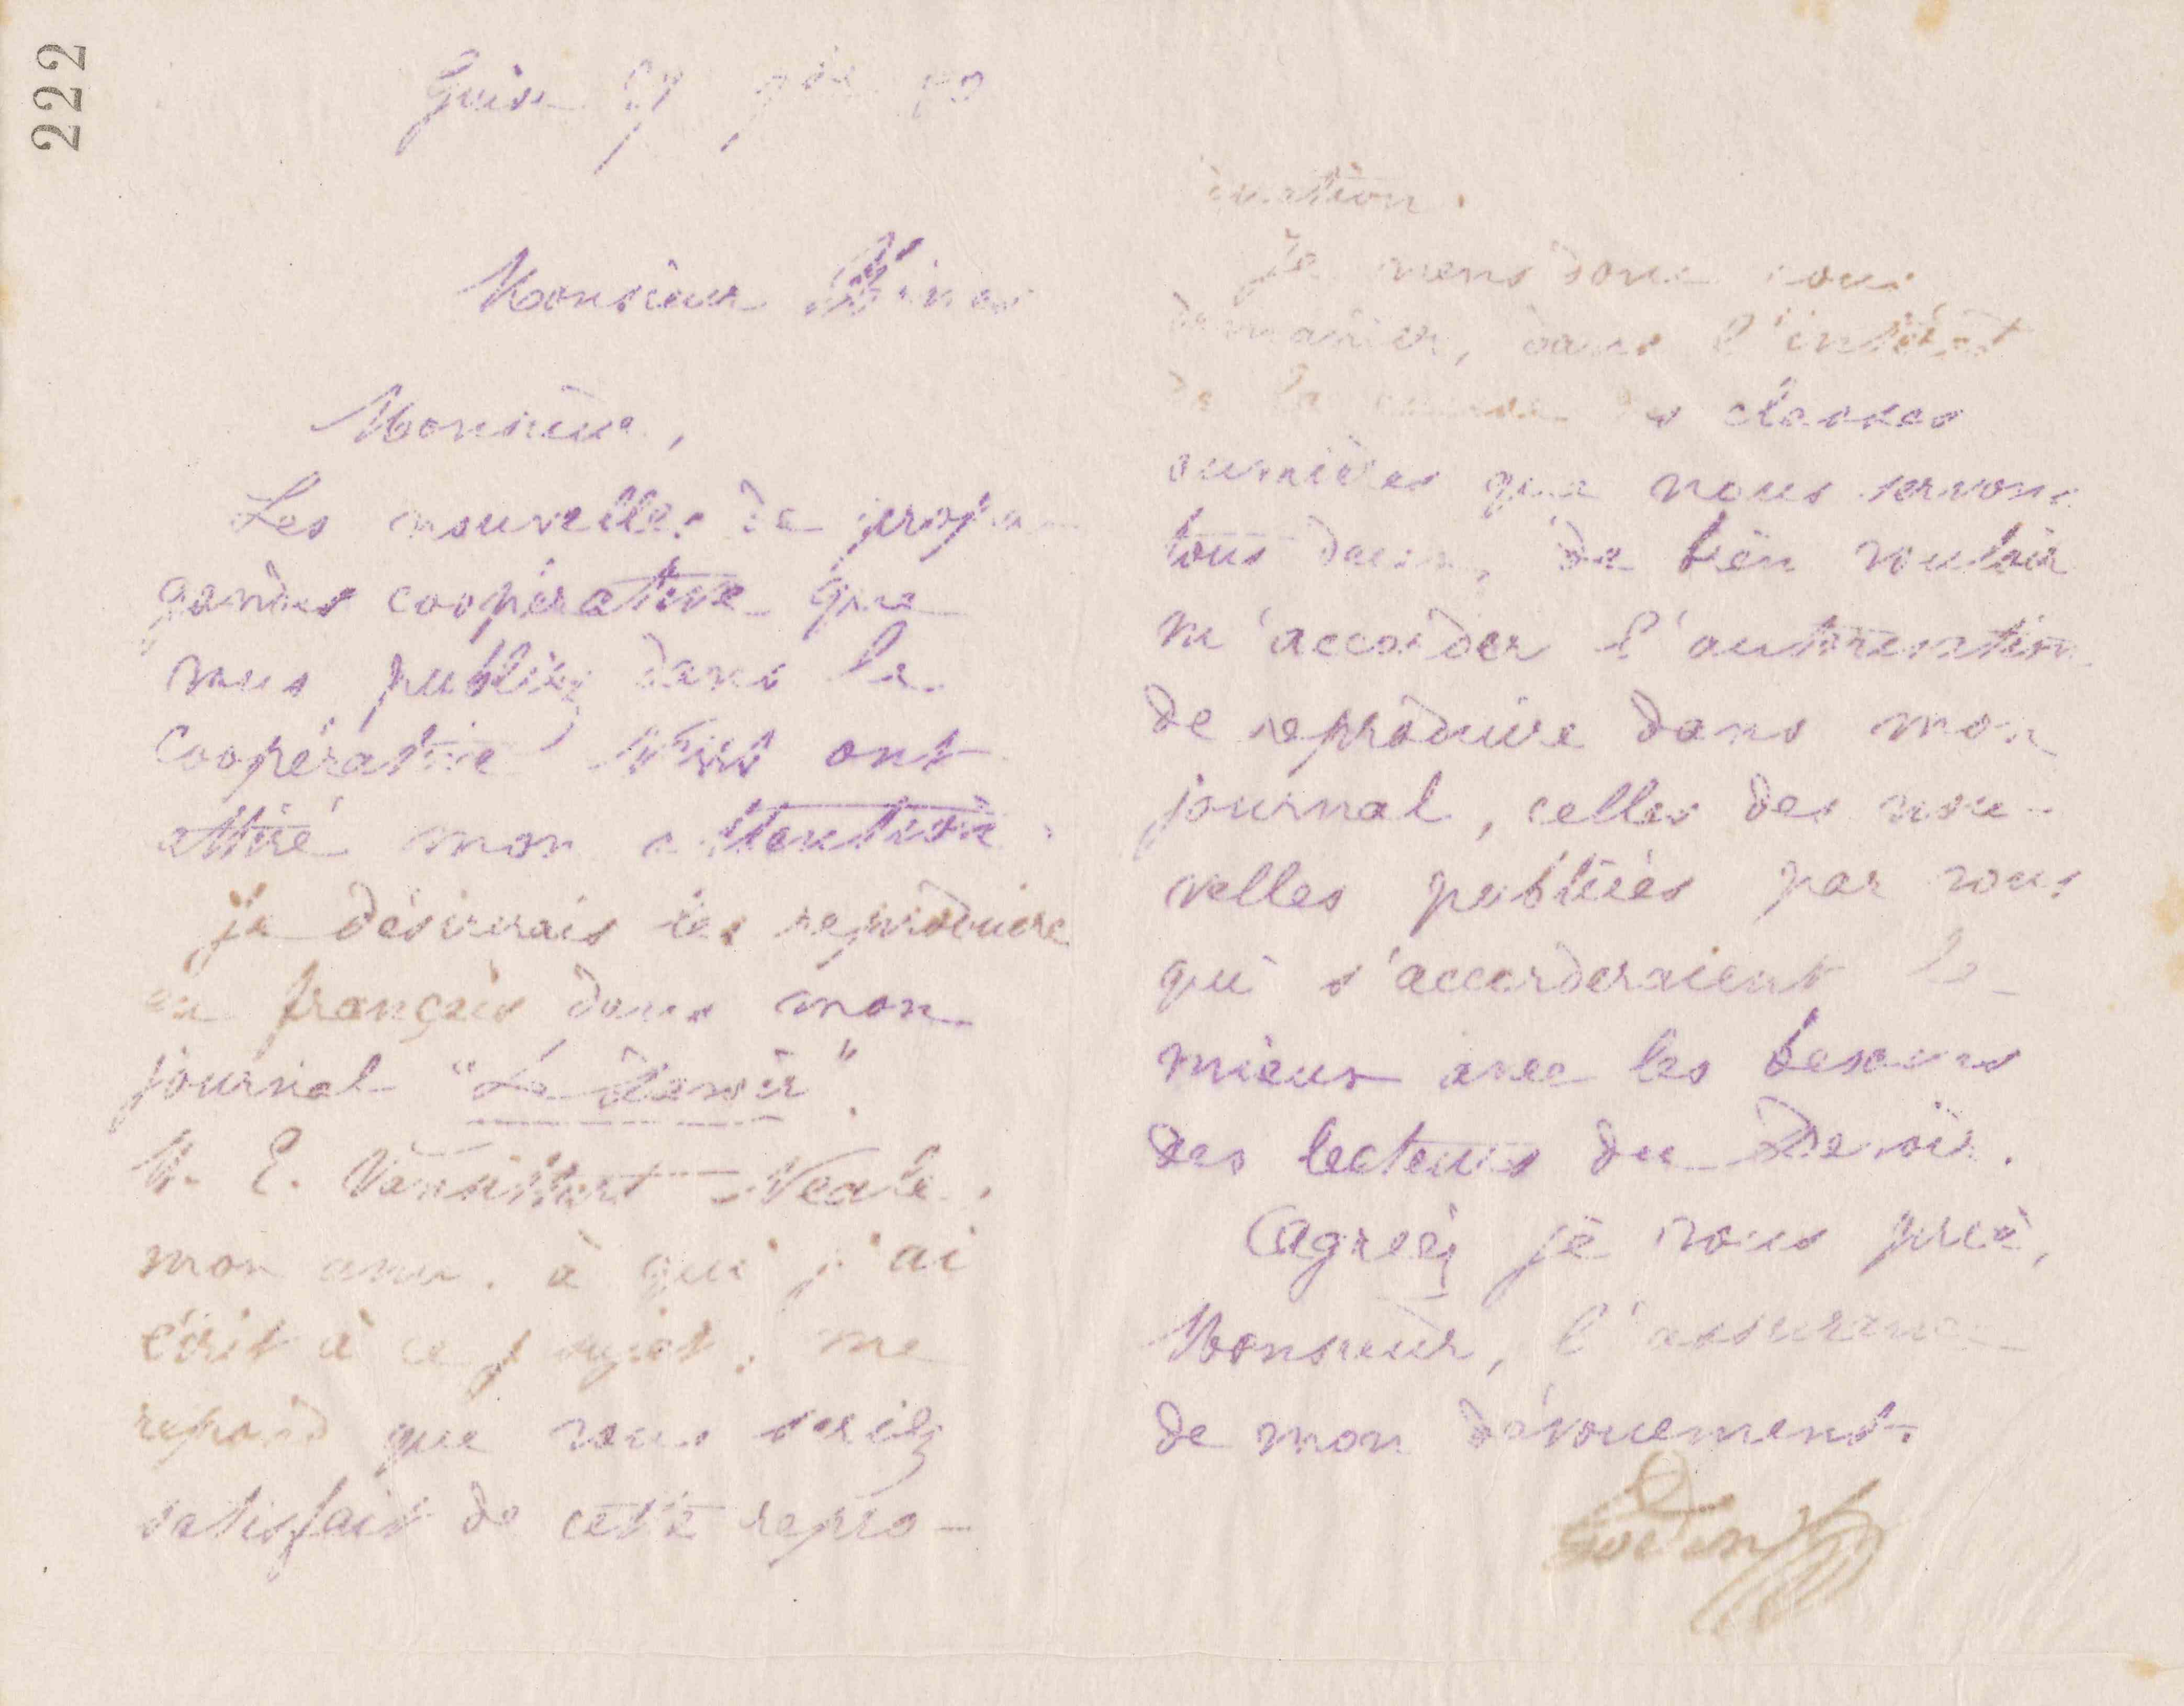 222
Guise
Monsieur
Monsieur,
Les nouvelles de propa
gandes coopérative que
vous publiez dans le
Coopérative News ont
attiré mon attention.
je désirerais les reproduire
en français dans mon
journal "Le Devoir".
M. E. Vansittart-Neale,
mon ami, à qui j'ai
écrit à ce sujet, me
répond que vous seriez
satisfait de cette repro-
Je viens donc vous
demander, dans l'intérêt
de la cause des classes
ouvrières que nous servons
tous deux, de bien vouloir
m'accorder l'autorisation
de reproduire dans mon
journal, celles des nou-
velles publiées par vous
qui s'accorderaient le
mieux avec les besoins
des lecteurs du Devoir.
Agréez je vous prie,
Monsieur, l'assurance
de mon dévouement.
Godin